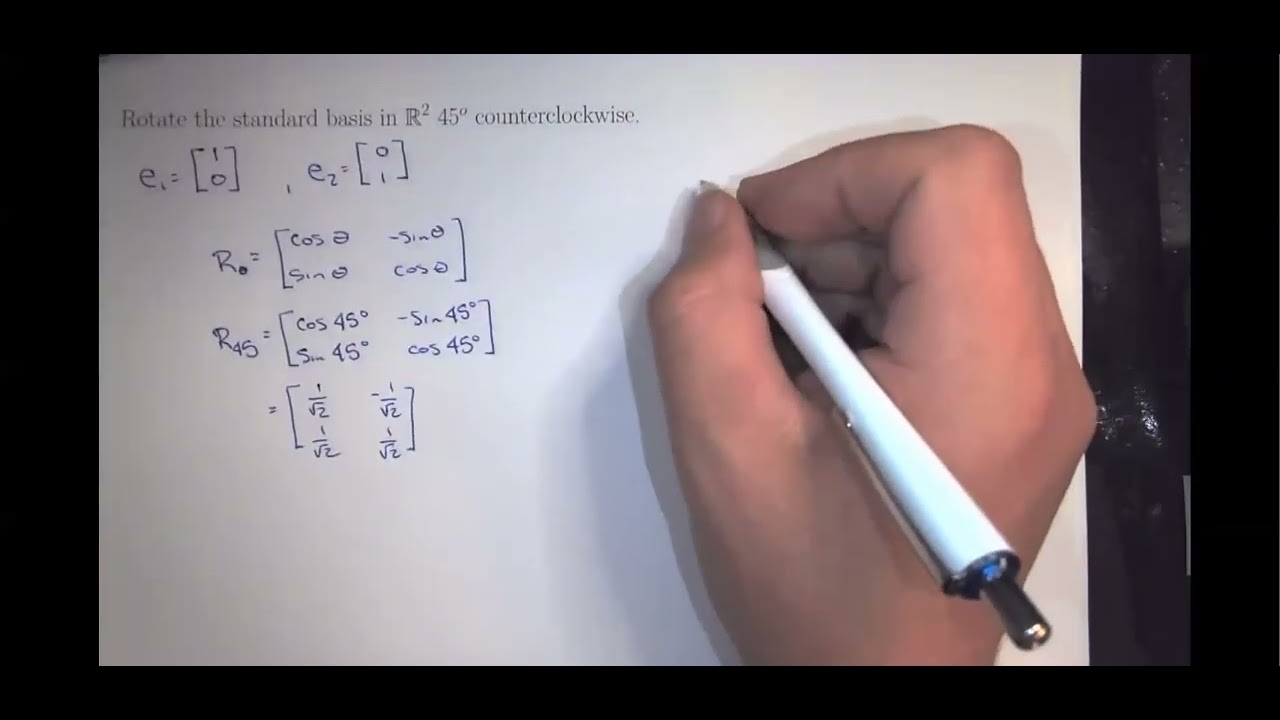 Rotate the standard basis in ℝ² 45° counterclockwise.
e₁ = [1 0] , e₂ = [0 1]
R_θ = [cos θ -sin θ
sin θ cos θ]
R₄₅ = [cos 45° -sin 45°
sin 45° cos 45°]
= [1/√2 -1/√2
1/√2 1/√2]